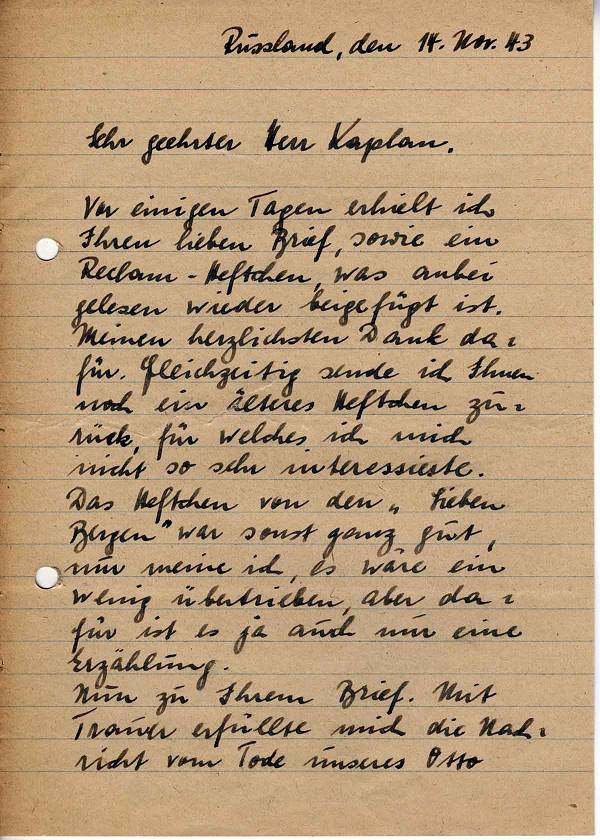 Russland, den 14. Nov. 43
Sehr geehrter Herr Kaplan.
Vor einigen Tagen erhielt ich
Ihren lieben Brief, sowie ein
Reclam-Heftchen, was anbei
gelesen wieder beigefügt ist.
Meinen herzlichsten Dank da=
für. Gleichzeitig sende ich Ihnen
noch ein älteres Heftchen zu=
rück, für welches ich mich
nicht so sehr interessierte.
Das Heftchen von den „Sieben
Bergen" war sonst ganz gut,
nur meine ich, es wäre ein
wenig übertrieben, aber da=
für ist es ja auch nur eine
Erzählung.
Nun zu Ihrem Brief. Mit
Trauer erfüllte mich die Nach=
richt vom Tode unseres Otto